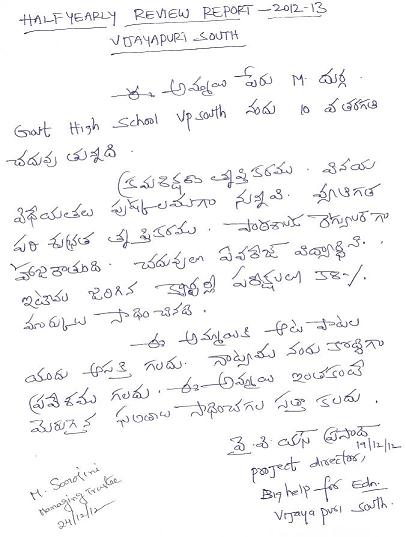 HALF YEARLY REVIEW REPORT - 2012-13
VIJAYAPURI SOUTH
ఈ అమ్మాయి పేరు M. దుర్గ.
Govt High School Vp south నందు 10 వ తరగతి
చదువు తున్నది.
క్రమశిక్షణ తృప్తికరము. వినయ
విధేయతలు పుష్కలముగా నున్నవి. వ్యక్తిగత
పరి శుభ్రత తృప్తికరము. పాఠశాలకు రెగ్యులర్ గా
హాజరౌతుంది. చదువులో ఏవరేజ్ విద్యార్థిని.
ఇటీవల జరిగిన క్వార్టర్లీ పరీక్షలలో %
మార్కులు సాధించినది.
ఈ అమ్మాయికి ఆట పాటల
యందు ఆసక్తి గలదు. నాట్యము నందు కొద్దిగా
ప్రవేశము గలదు. ఈ అమ్మాయి ఇంతకంటే
మెరుగైన ఫలితాలు సాధించగల సత్తా కలదు.
వై. శి. యస్ ప్రసాద్
19/12/12
project director,
Big help for Edn.
Vijaya puri south.
M. Sarojini
Managing Trustee
24/12/12